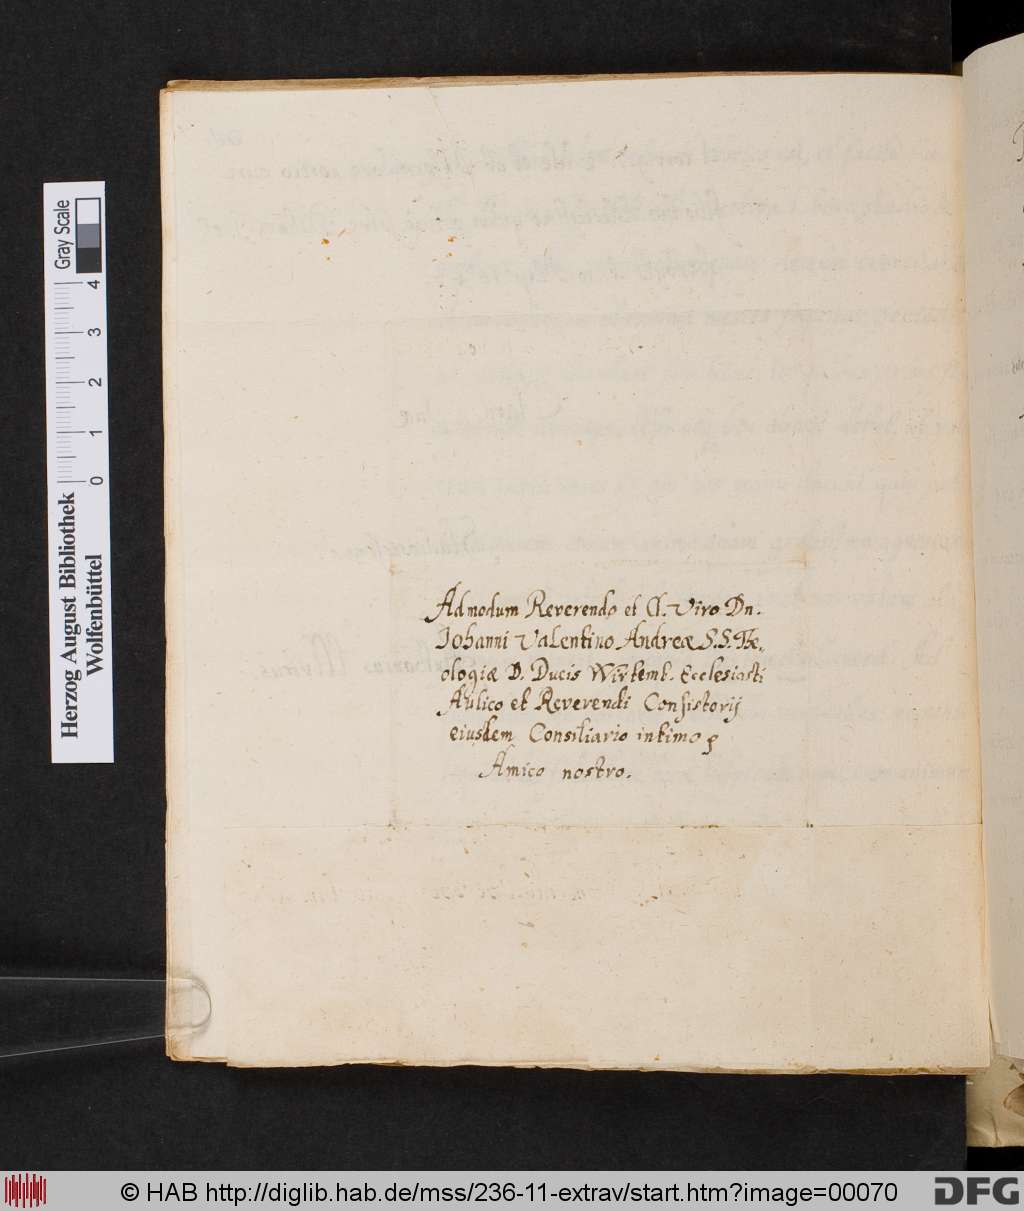 Admodum Reverendo et Cl. Viro Dn.
Iohanni Valentino Andreæ S.S. The-
ologiæ D. Ducis Wirtemb. Ecclesiasti
Aulico et Reverendi Consistorij
eiusdem Consiliario intimo
Amico nostro.
Gray Scale
4
3
2
1
0
Herzog August Bibliothek
Wolfenbüttel
© HAB http://diglib.hab.de/mss/236-11-extrav/start.htm?image=00070
DFG